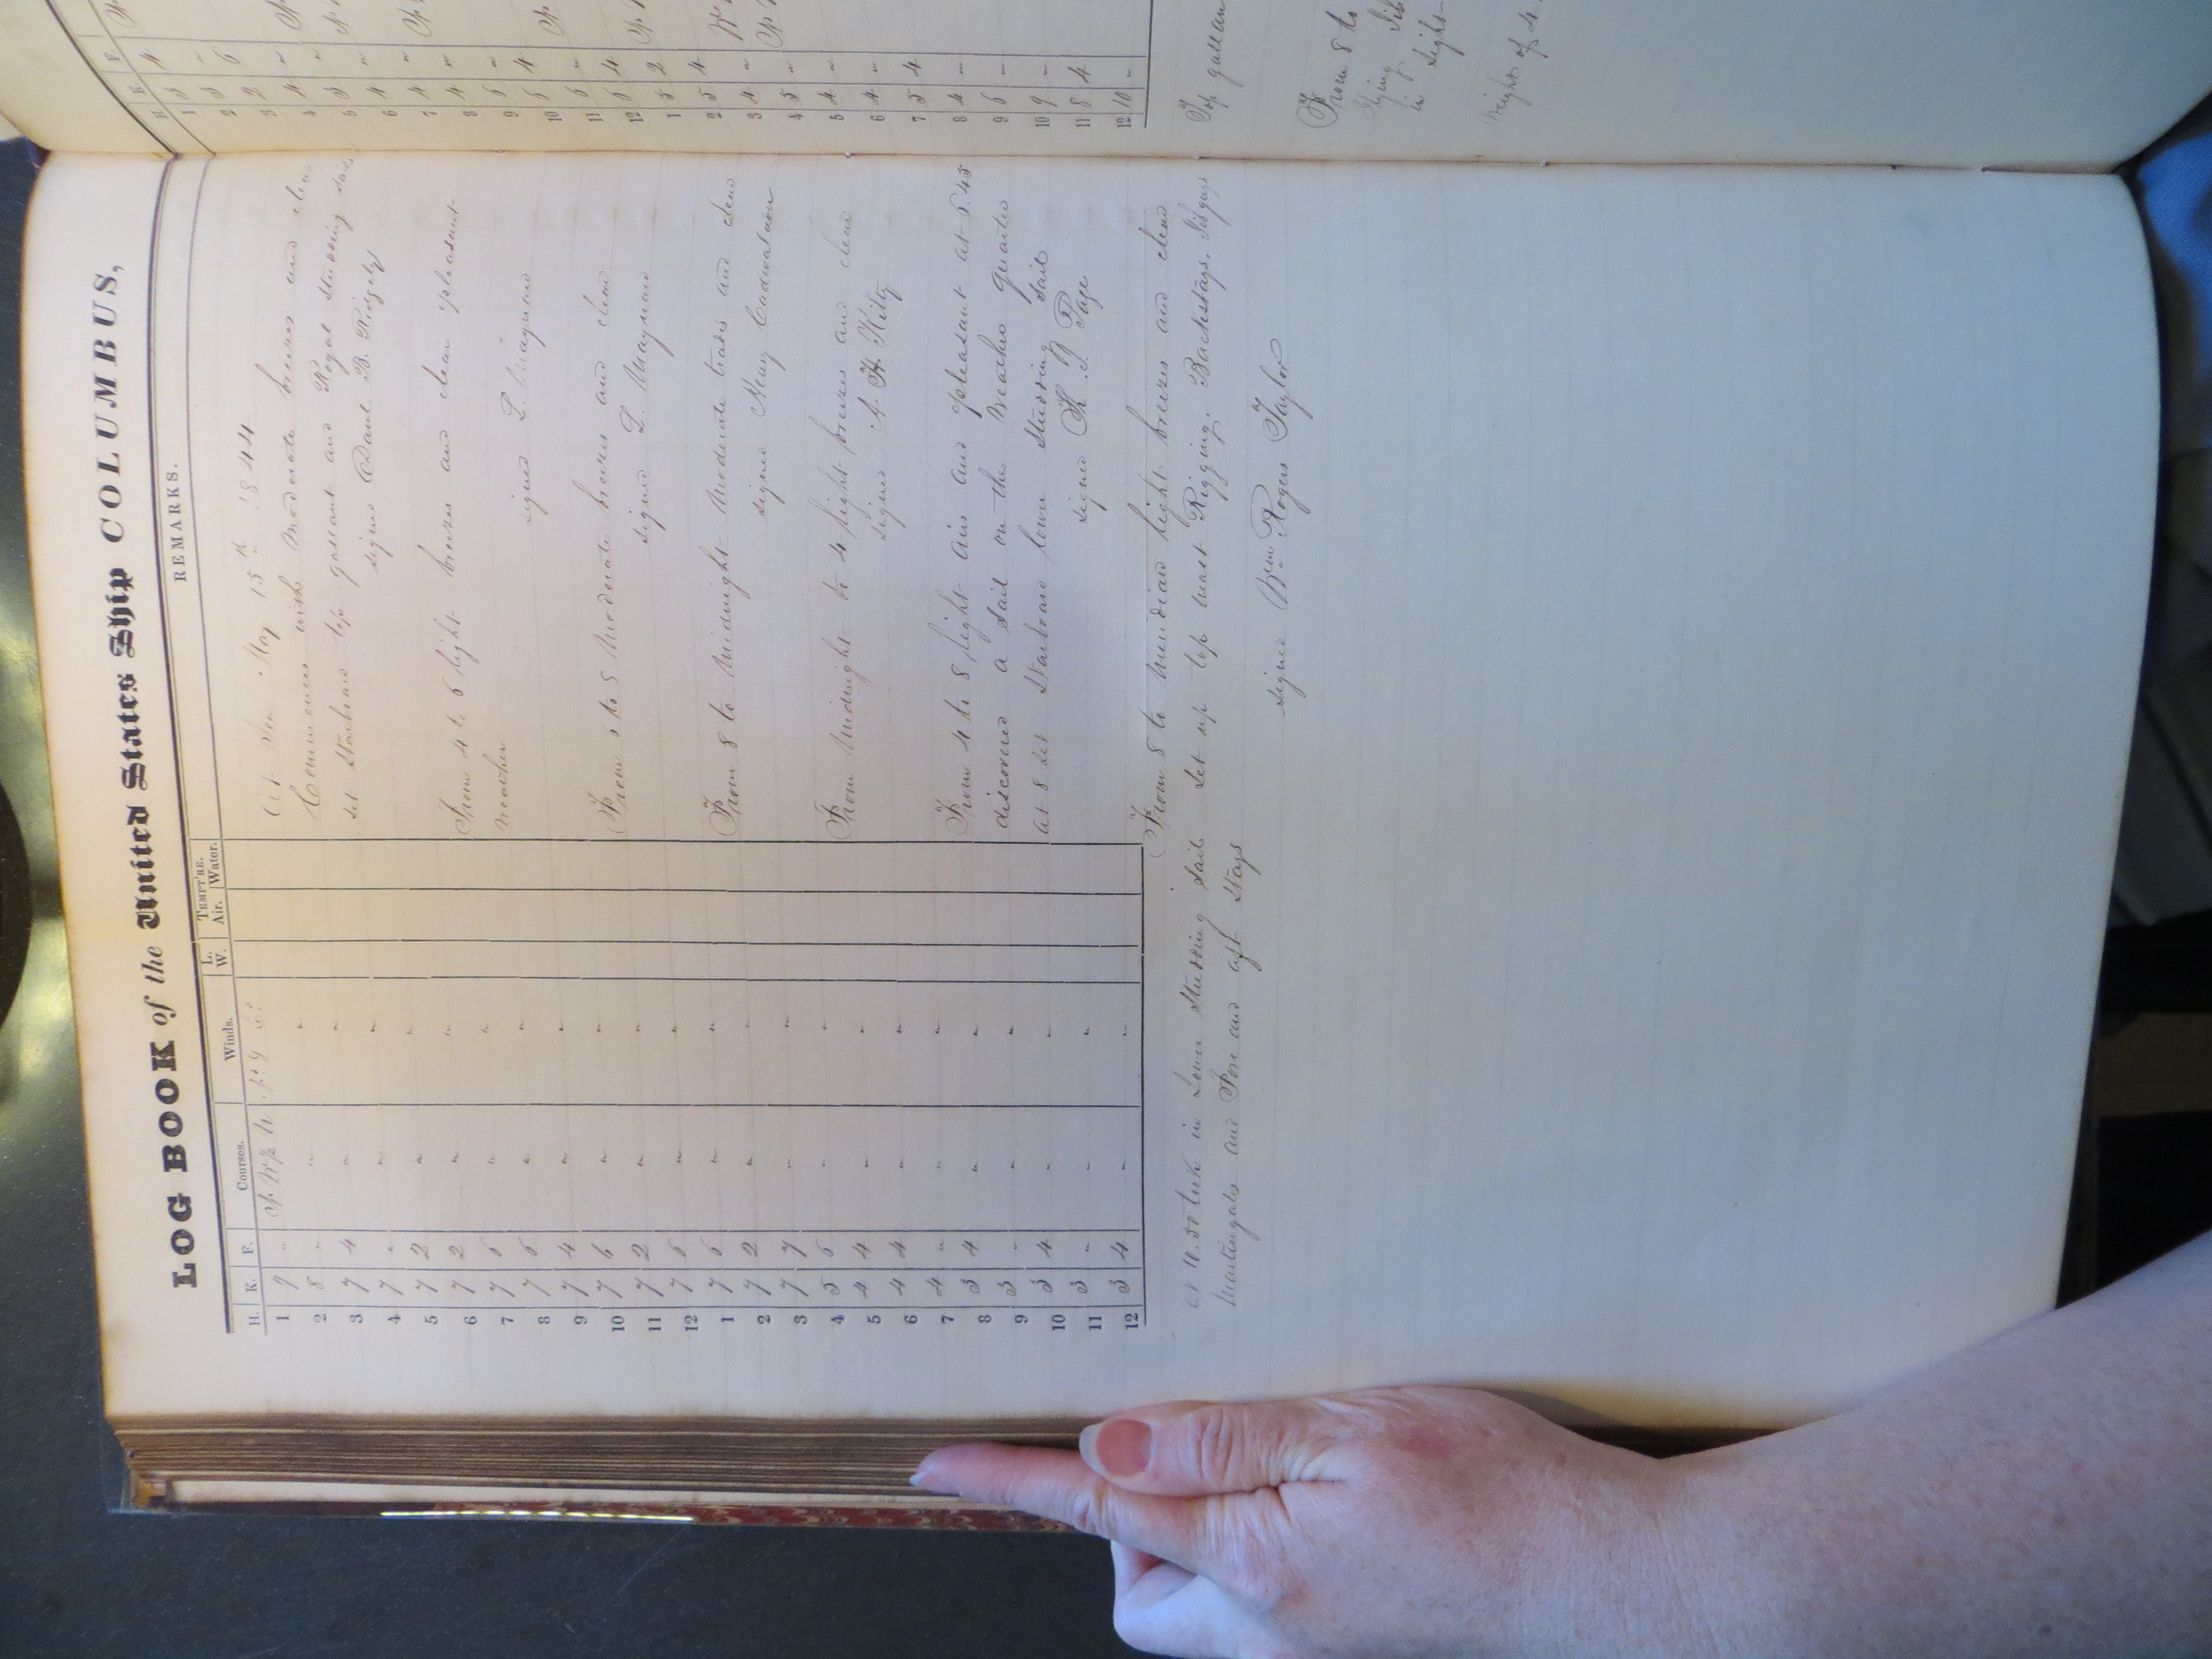 LOG BOOK of the United States Ship COLUMBUS,
H. K. F. Courses. Winds. L. W. TEMPT'RE. Air. Water. REMARKS.
At Sea May 15th 1844
Commences with Moderate breezes and clear
set Starboard top gallant and Royal studding sails
signed Danl. B. Ridgely
From 4 to 6 light breezes and clear pleasant
weather
signed L. Maynard
From 6 to 8 Moderate breezes and clear
signed L. Maynard
From 8 to Midnight Moderate trades and clear
signed Henry Cadwalader
From Midnight to 4 light breezes and clear
signed A. H. Kilty
From 4 to 8 light airs and pleasant at 5.45
discovered a sail on the Weather quarter
at 8 set Starboard lower studding sail
signed R. L. Page
From 8 to Meridian light breezes and clear
at 10.30 took in Lower studding sail set up top mast Rigging. Backstays. Jib guys
Martingales and Fore and aft stays
signed Wm. Rogers Taylor
1 9 "
2 8 " " "
3 7 4 " "
4 7 " " "
5 7 2 " "
6 7 2 " "
7 7 6 " "
8 7 6 " "
9 7 4 " "
10 7 6 " "
11 7 2 " "
12 7 6 " "
1 7 6 " "
2 7 2 " "
3 7 7 " "
4 5 6 " "
5 4 4 " "
6 4 4 " "
7 4 " " "
8 3 4 " "
9 3 " " "
10 3 4 " "
11 3 " " "
12 3 4 " "
Top gallan
From 8 to
flying Jib
in
sight
weight of